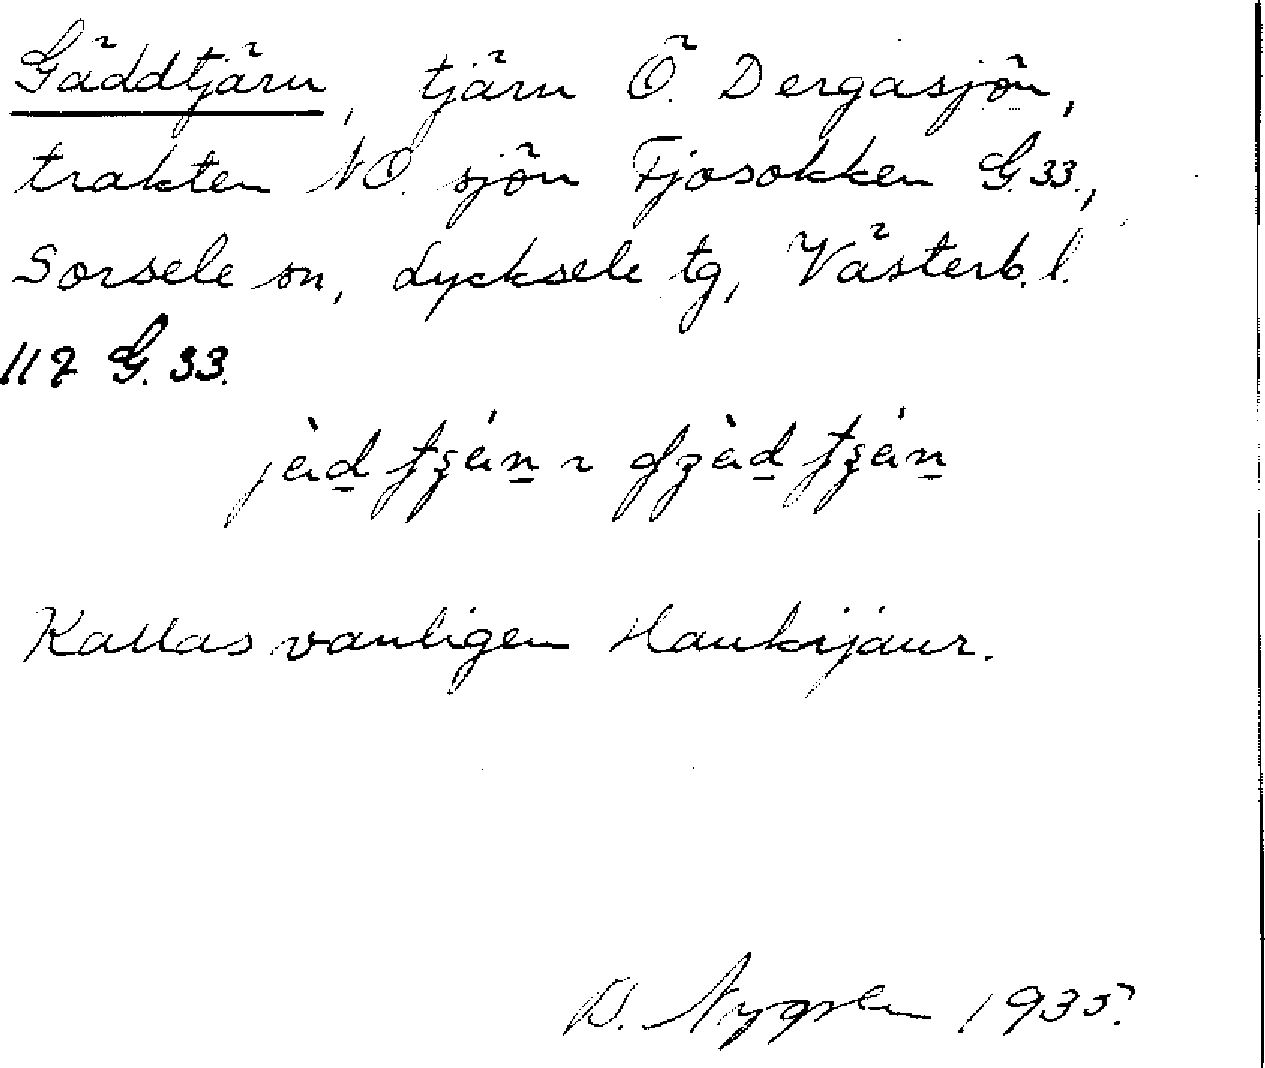 Gäddtjärn, tjärn Ö. Dergasjön,
trakten NO. sjön Fjosokken G.33.,
Sorsele sn, Lycksele tg, Västerb. l.
117 G. 33.
Kallas vanligen Haukijaur.
D. Nygren 1935.